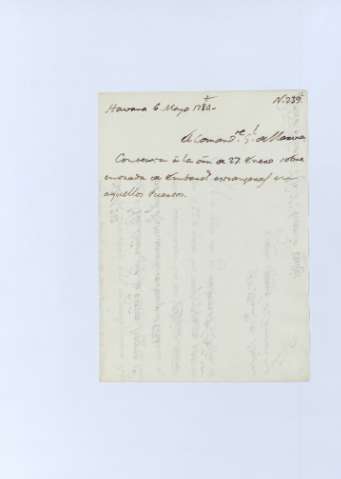 Havana 6 Mayo 178
N. 239
El Comand.te G.l de Marina
Contexta à la orn. de 27 Enero sobre
entrada de Embarc.s extrangeras en
aquellos Puertos.